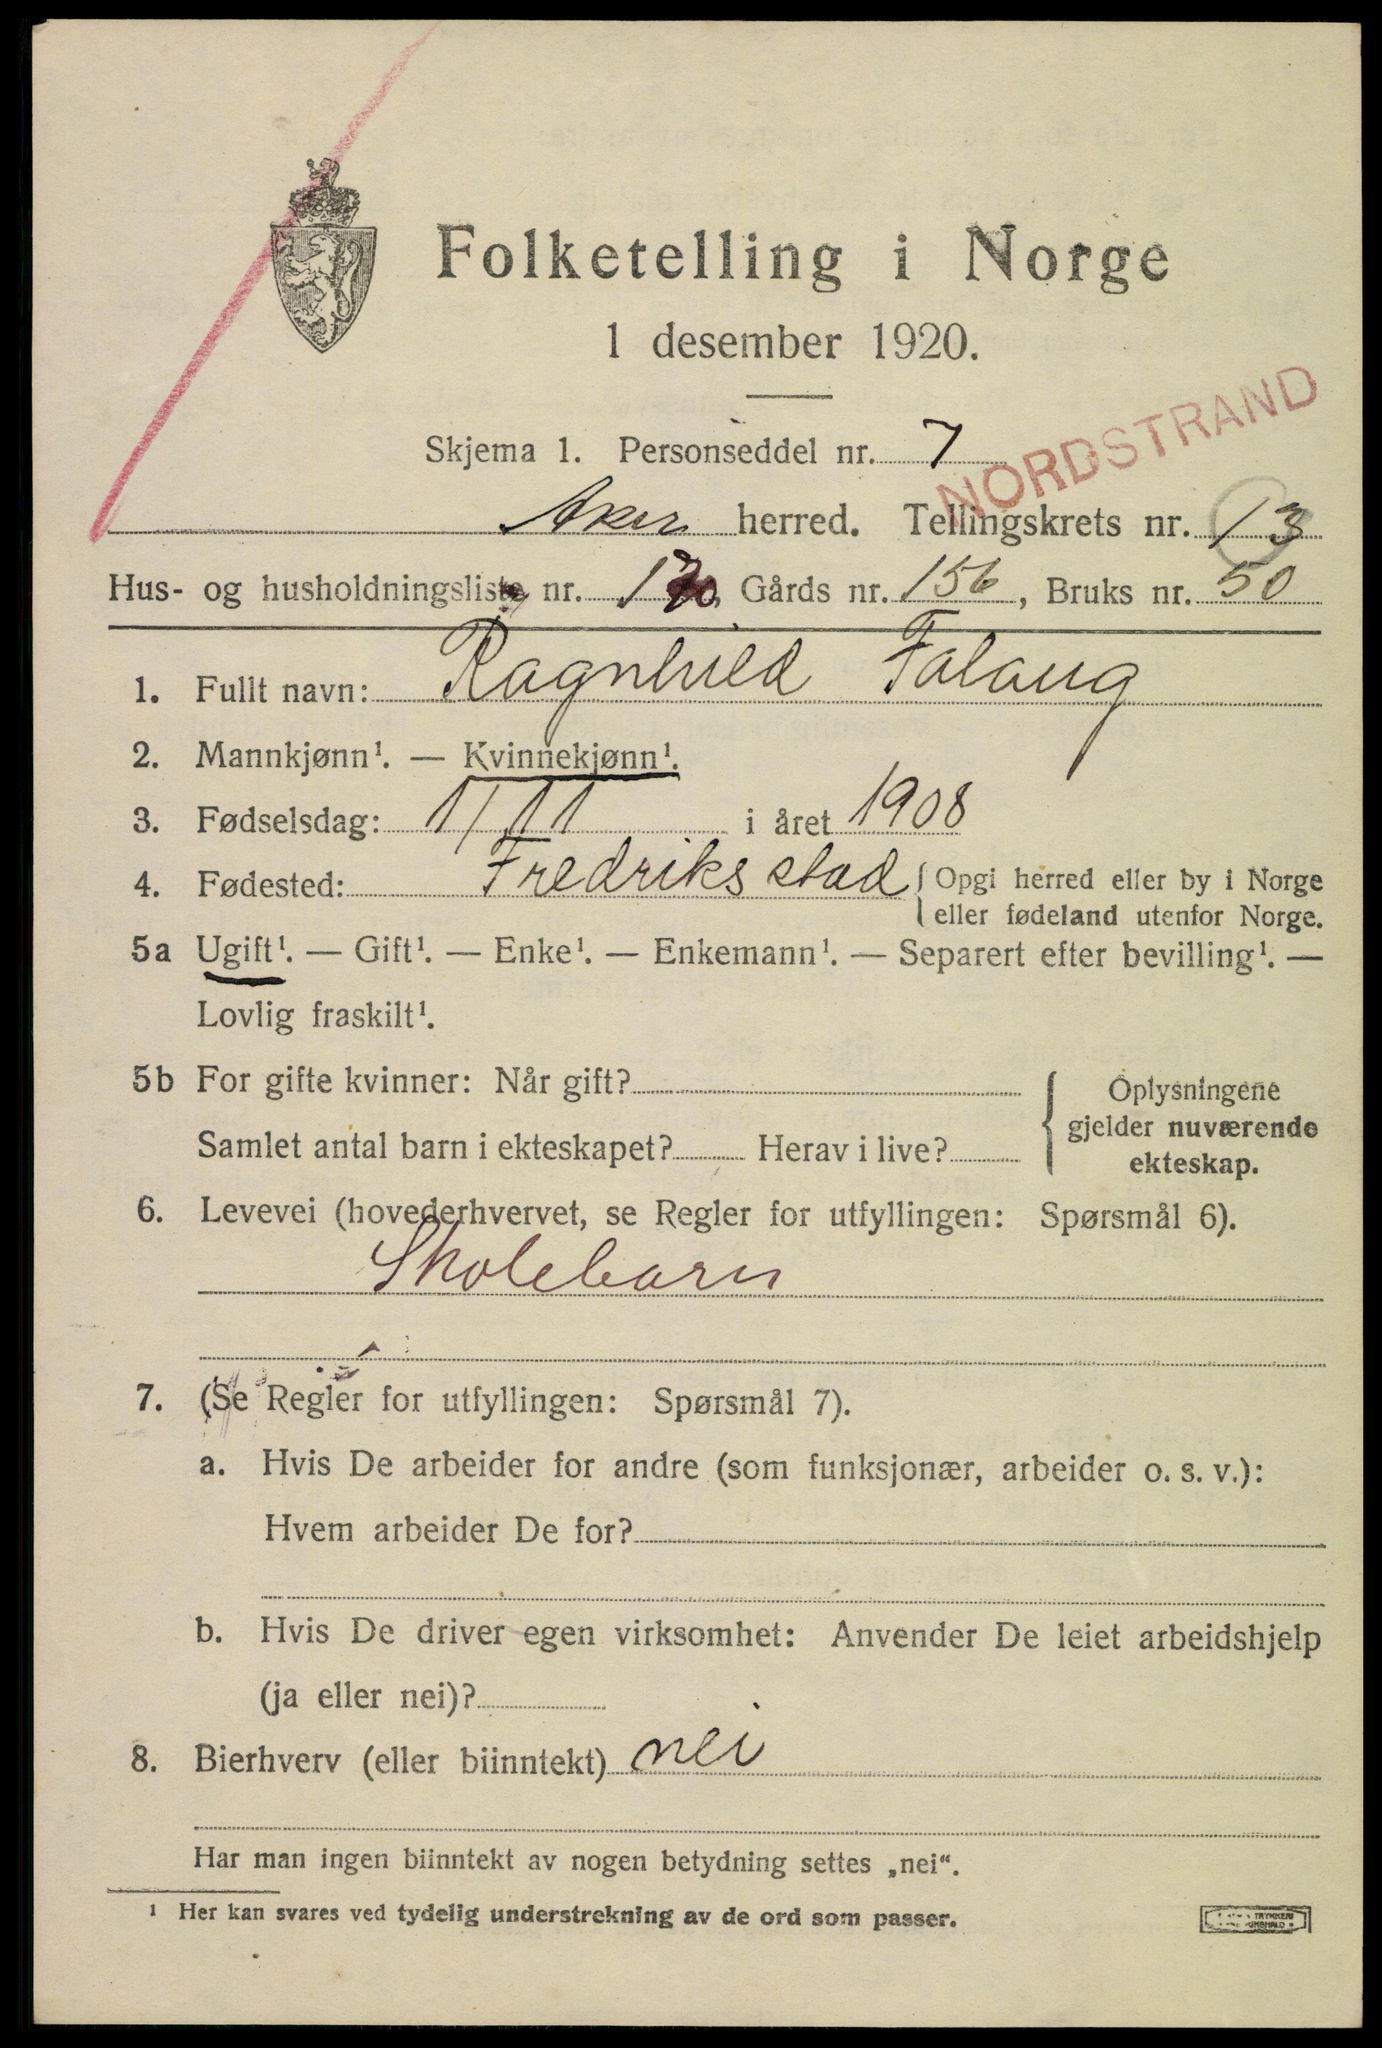 Folketelling i Norge
1 desember 1920.
NORDSTRAND
Skjema 1. Personseddel nr. 7
Aker herred. Tellingskrets nr. 13
Hus- og husholdningsliste nr. 120, Gårds nr. 156, Bruks nr. 50
1. Fullt navn: Ragnhild Falaug
2. Mannkjønn¹. — Kvinnekjønn¹.
3. Fødselsdag: 1/11 i året 1908
4. Fødested: Fredriksstad { Opgi herred eller by i Norge
eller fødeland utenfor Norge.
5a Ugift¹. — Gift¹. — Enke¹. — Enkemann¹. — Separert efter bevilling¹. —
Lovlig fraskilt¹.
5b For gifte kvinner: Når gift?
Samlet antal barn i ekteskapet? Herav i live?
Oplysningene
gjelder nuværende
ekteskap.
6. Levevei (hovederhvervet, se Regler for utfyllingen: Spørsmål 6).
Skolebarn
7. (Se Regler for utfyllingen: Spørsmål 7).
a. Hvis De arbeider for andre (som funksjonær, arbeider o. s. v.):
Hvem arbeider De for?
b. Hvis De driver egen virksomhet: Anvender De leiet arbeidshjelp
(ja eller nei)?
8. Bierhverv (eller biinntekt) nei
Har man ingen biinntekt av nogen betydning settes „nei“.
¹ Her kan svares ved tydelig understrekning av de ord som passer.